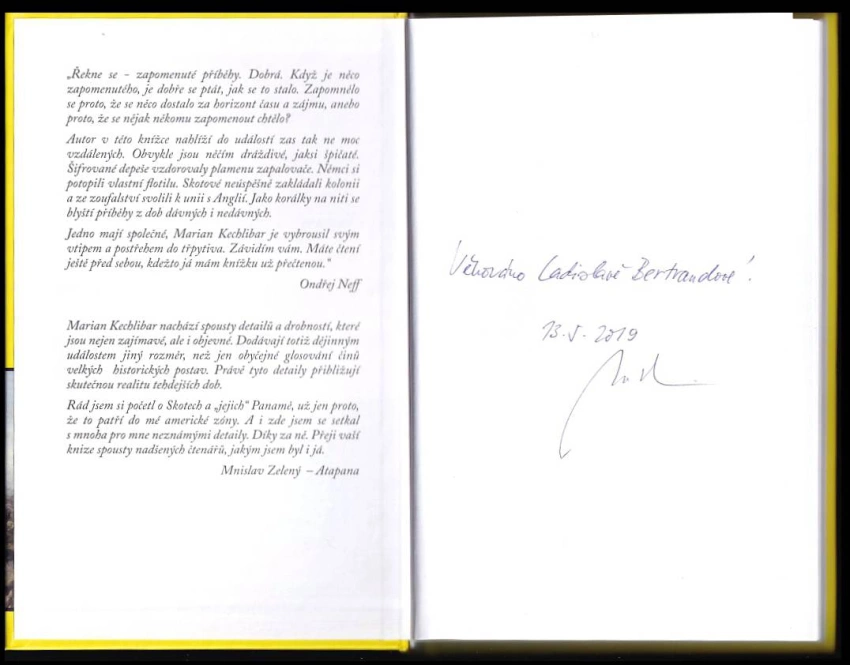 „Řekne se – zapomenuté příběhy. Dobrá. Když je něco
zapomenutého, je dobře se ptát, jak se to stalo. Zapomnělo
se proto, že se něco dostalo za horizont času a zájmu, anebo
proto, že se nějak někomu zapomenout chtělo?
Autor v této knížce nahlíží do událostí zas tak ne moc
vzdálených. Obvykle jsou něčím dráždivé, jaksi špičaté.
Šifrované depeše vzdorovaly plamenu zapalovače. Němci si
potopili vlastní flotilu. Skotové neúspěšně zakládali kolonii
a ze zoufalství svolili k unii s Anglií. Jako korálky na niti se
blyští příběhy z dob dávných i nedávných.
Jedno mají společné, Marian Kechlibar je vybrousil svým
vtipem a postřehem do třpytiva. Závidím vám. Máte čtení
ještě před sebou, kdežto já mám knížku už přečtenou.“
Ondřej Neff
Marian Kechlibar nachází spousty detailů a drobností, které
jsou nejen zajímavé, ale i objevné. Dodávají totiž dějinným
událostem jiný rozměr, než jen obyčejné glosování činů
velkých historických postav. Právě tyto detaily přibližují
skutečnou realitu tehdejších dob.
Rád jsem si početl o Skotech a „jejich“ Panamě, už jen proto,
že to patří do mé americké zóny. A i zde jsem se setkal
s mnoha pro mne neznámými detaily. Díky za ně. Přeji vaší
knize spousty nadšených čtenářů, jakým jsem byl i já.
Mnislav Zelený – Atapana
Věnováno Ladislavě Bertrandové!
13.5.2019